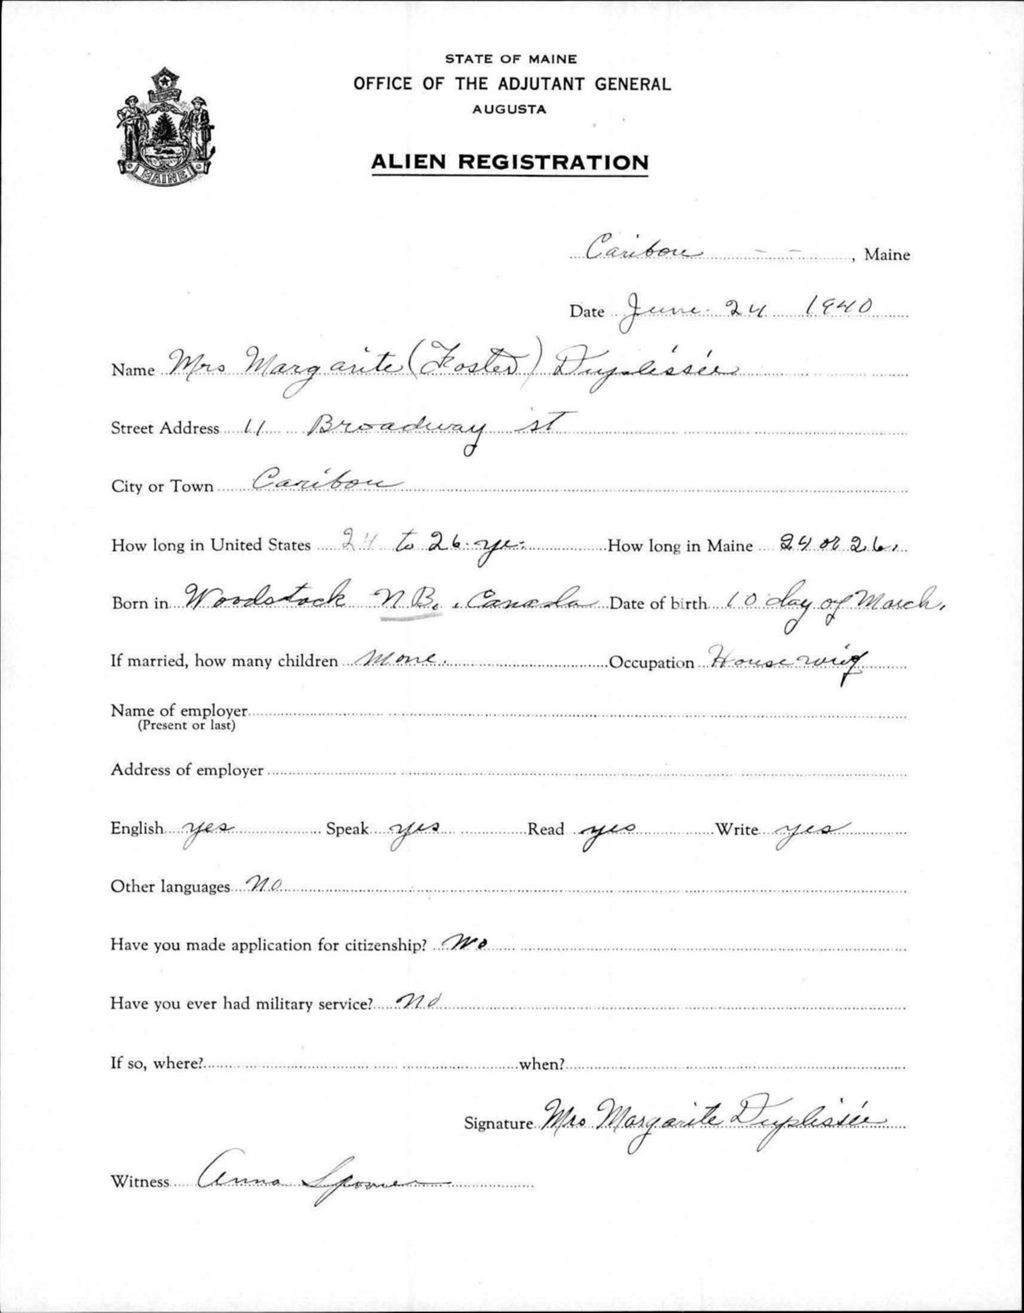 STATE OF MAINE
OFFICE OF THE ADJUTANT GENERAL
AUGUSTA
MAINE
ALIEN REGISTRATION
Caribou - - , Maine
Date June 24 1940
Name Mrs Margarite (Foster) Duplissie
Street Address 11 Broadway st
City or Town Caribou
How long in United States 24 to 26 yr. How long in Maine 24 or 26.
Born in Woodstock N B. , Canada Date of birth 10 day of March.
If married, how many children None. Occupation Housewife
Name of employer
(Present or last)
Address of employer
English yes Speak yes Read yes Write yes
Other languages No
Have you made application for citizenship? No
Have you ever had military service? No
If so, where? when?
Signature Mrs Margarite Duplissie
Witness Anna